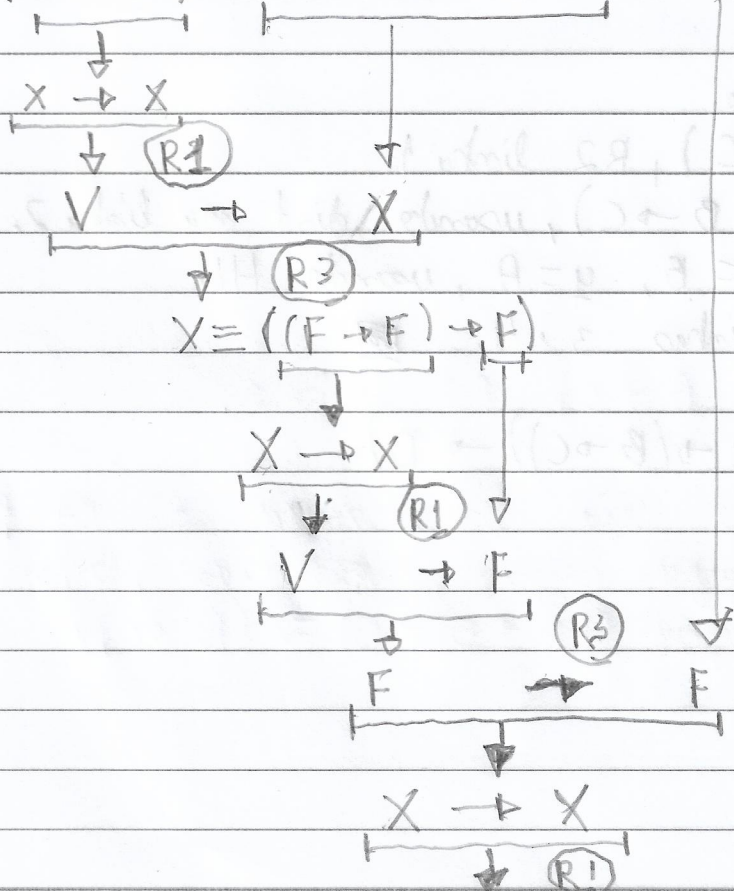 X → X
R1
V → X
R3
X ≡ ((F → F) → F)
X → X
R1
V → F
R3
F → F
X → X
R1